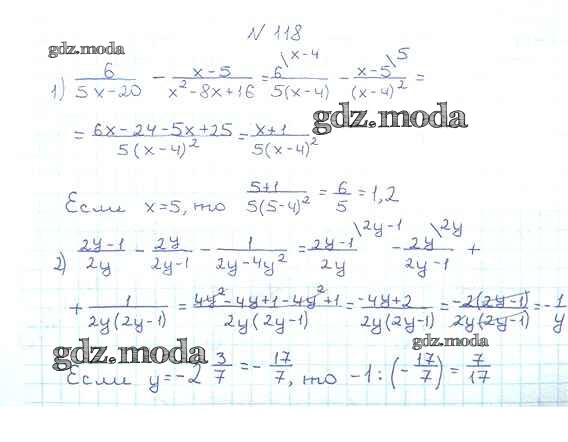 № 118
gdz.moda
1) 6/(5x-20) - (x-5)/(x²-8x+16) = 6\x-4/(5(x-4)) - (x-5)\5/((x-4)²) =
gdz.moda
= (6x-24-5x+25)/(5(x-4)²) = (x+1)/(5(x-4)²)
Если x=5, то (5+1)/(5(5-4)²) = 6/5 = 1,2
2) (2y-1)/(2y) - 2y/(2y-1) - 1/(2y-4y²) = (2y-1)\2y-1/(2y) - 2y\2y/(2y-1) +
+ 1/(2y(2y-1)) = (4y²-4y+1-4y²+1)/(2y(2y-1)) = (-4y+2)/(2y(2y-1)) = (-2(2y-1))/(2y(2y-1)) = -1/y
gdz.moda
gdz.moda
Если y=-2 3/7 = -17/7, то -1:(-17/7) = 7/17